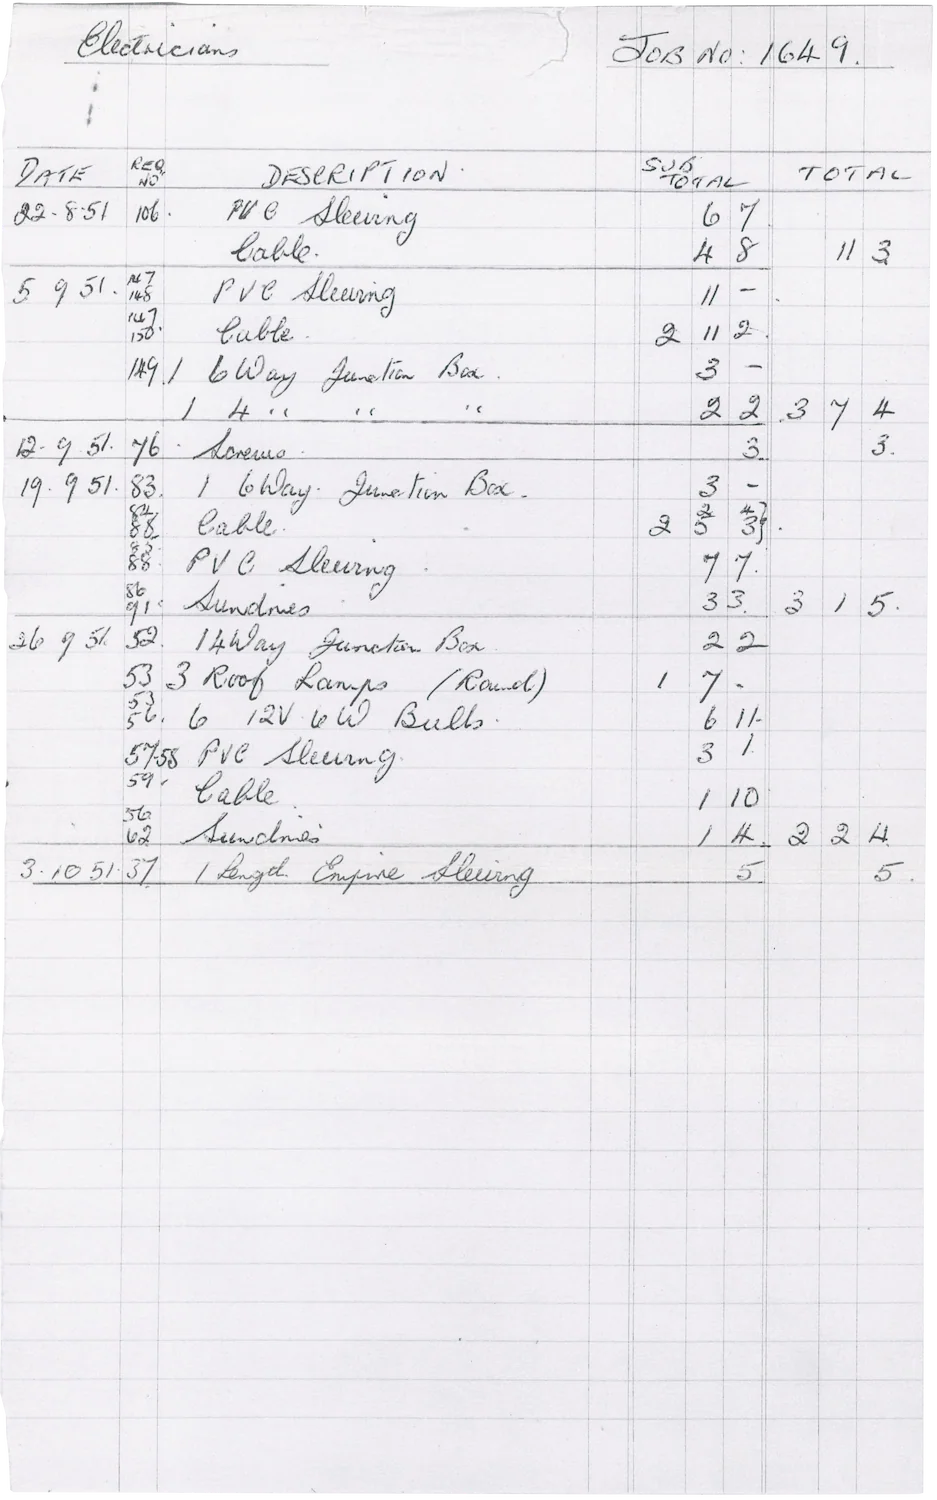 Electricians JOB NO: 1649.
DATE REQ NO DESCRIPTION. SUB TOTAL TOTAL
22-8-51 106. PVC Sleeving 6 7
Cable. 4 8 11 3
5 9 51. 147 148 PVC Sleeving 11 -
147 150. Cable. 2 11 2.
149. 1 6 Way Junction Box. 3 -
1 4 " " " 2 2 3 7 4
12-9 51. 76. Screws 3. 3.
19. 9 51. 83. 1 6 Way. Junction Box. 3 -
84, 88, Cable. 2 5 3}.
88. PVC Sleeving. 7 7.
86 91. Sundries 3 3. 3 1 5.
26 9 51. 52. 1 4 Way Junction Box 2 2
53 3 Roof Lamps (Round) 1 7 -
53 56. 6 12V 6W Bulbs. 6 11-
57-58 PVC Sleeving. 3 1
59. Cable 1 10
56 62 Sundries 1 4. 2 2 4
3.10 51. 37 1 Length Empire Sleeving 5 5.